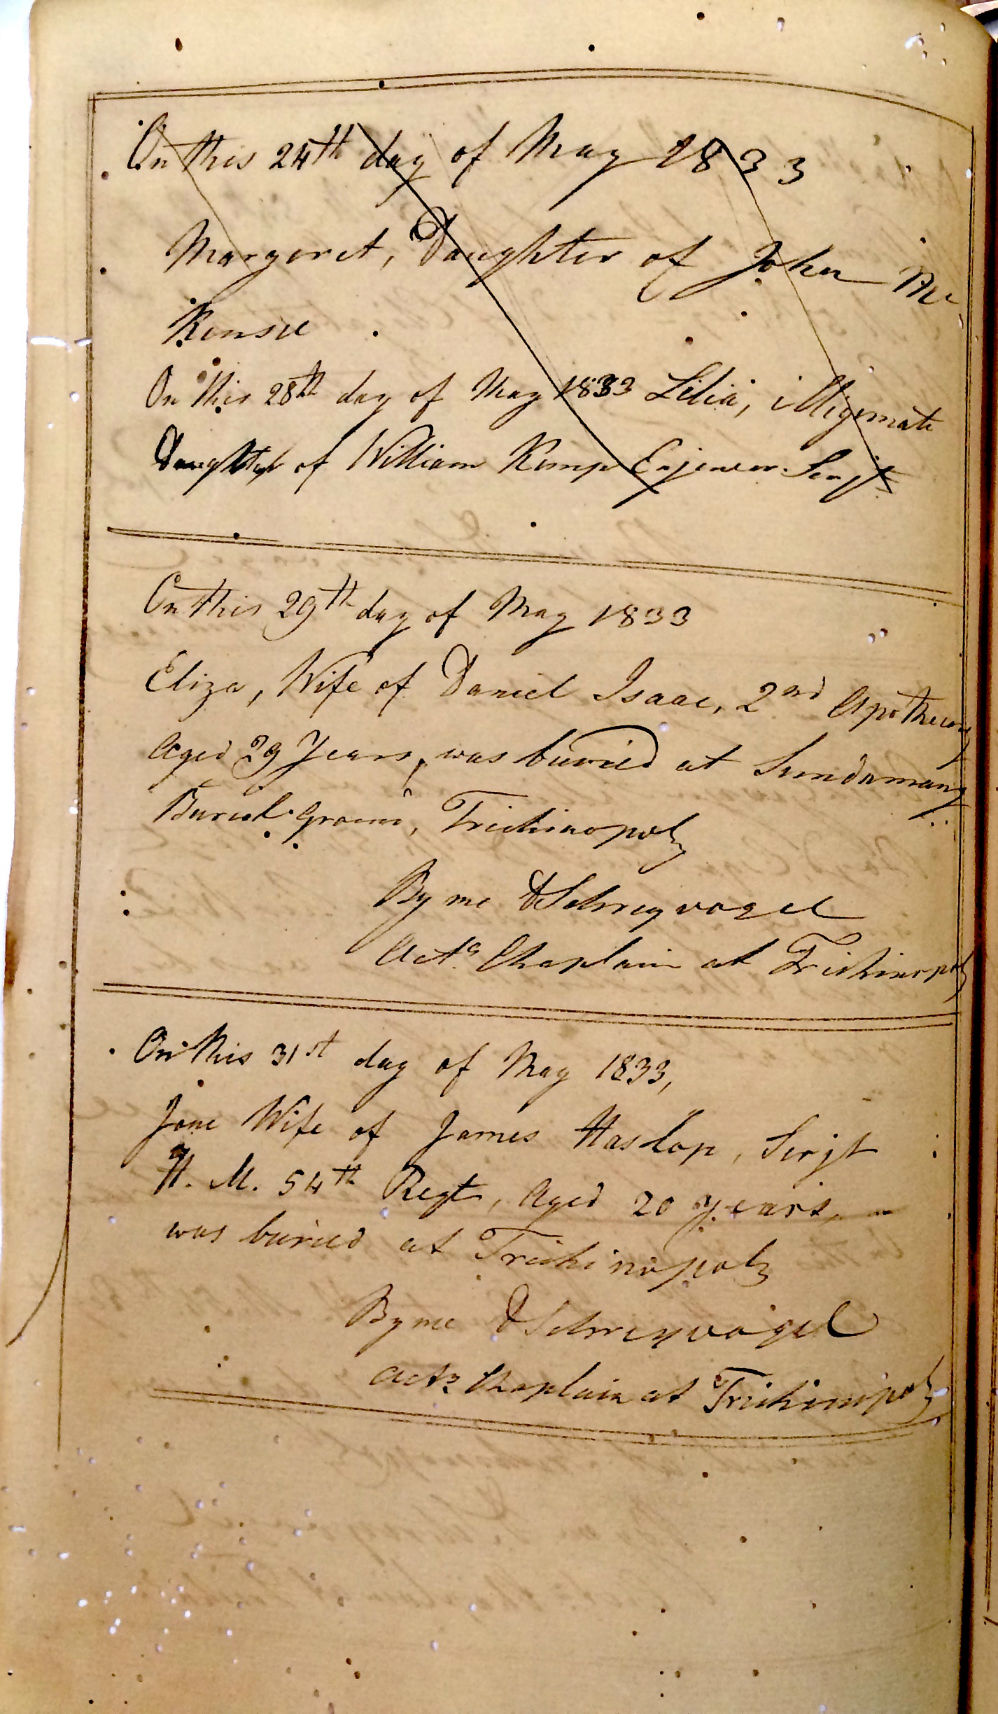 On this 24th day of May 1833
Margeret, Daughter of John Mc
Kensie
On this 28th day of May 1833 Lilia, illigemate
Daughter of William Kemp Serjt
On this 29th day of May 1833
Eliza, Wife of Daniel Isaac, 2nd Apothecary
Aged 29 Years, was buried at Sundamany
Burial ground, Trichinopoly
By me D Schreyvogel
Actg Chaplain at Trichinopoly
On this 31st day of May 1833,
Jane Wife of James Haslop, Serjt
H. M. 54th Regt, Aged 20 years,
was buried at Trichinopoly
By me D Schreyvogel
Actg Chaplain at Trichinopoly